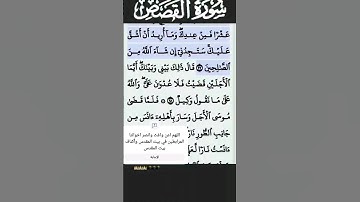 سُورَةُ القَصَصِ
عَشْرًا فَمِنْ عِندِكَ وَمَا أُرِيدُ أَنْ أَشُقَّ
عَلَيْكَ سَتَجِدُنِي إِن شَاءَ اللَّهُ مِنَ
الصَّالِحِينَ ۝ قَالَ ذَٰلِكَ بَيْنِي وَبَيْنَكَ أَيَّمَا
الْأَجَلَيْنِ قَضَيْتُ فَلَا عُدْوَانَ عَلَيَّ وَاللَّهُ
عَلَىٰ مَا نَقُولُ وَكِيلٌ ۝ فَلَمَّا قَضَىٰ
مُوسَى الْأَجَلَ وَسَارَ بِأَهْلِهِ ءَانَسَ مِن
جَانِبِ الطُّورِ نَارًا
ءَانَسْتُ نَارًا لَّعَلِّي
اللهم امن وثبت وانصر اخواننا
المرابطين في بيت المقدس وأكناف
بيت المقدس